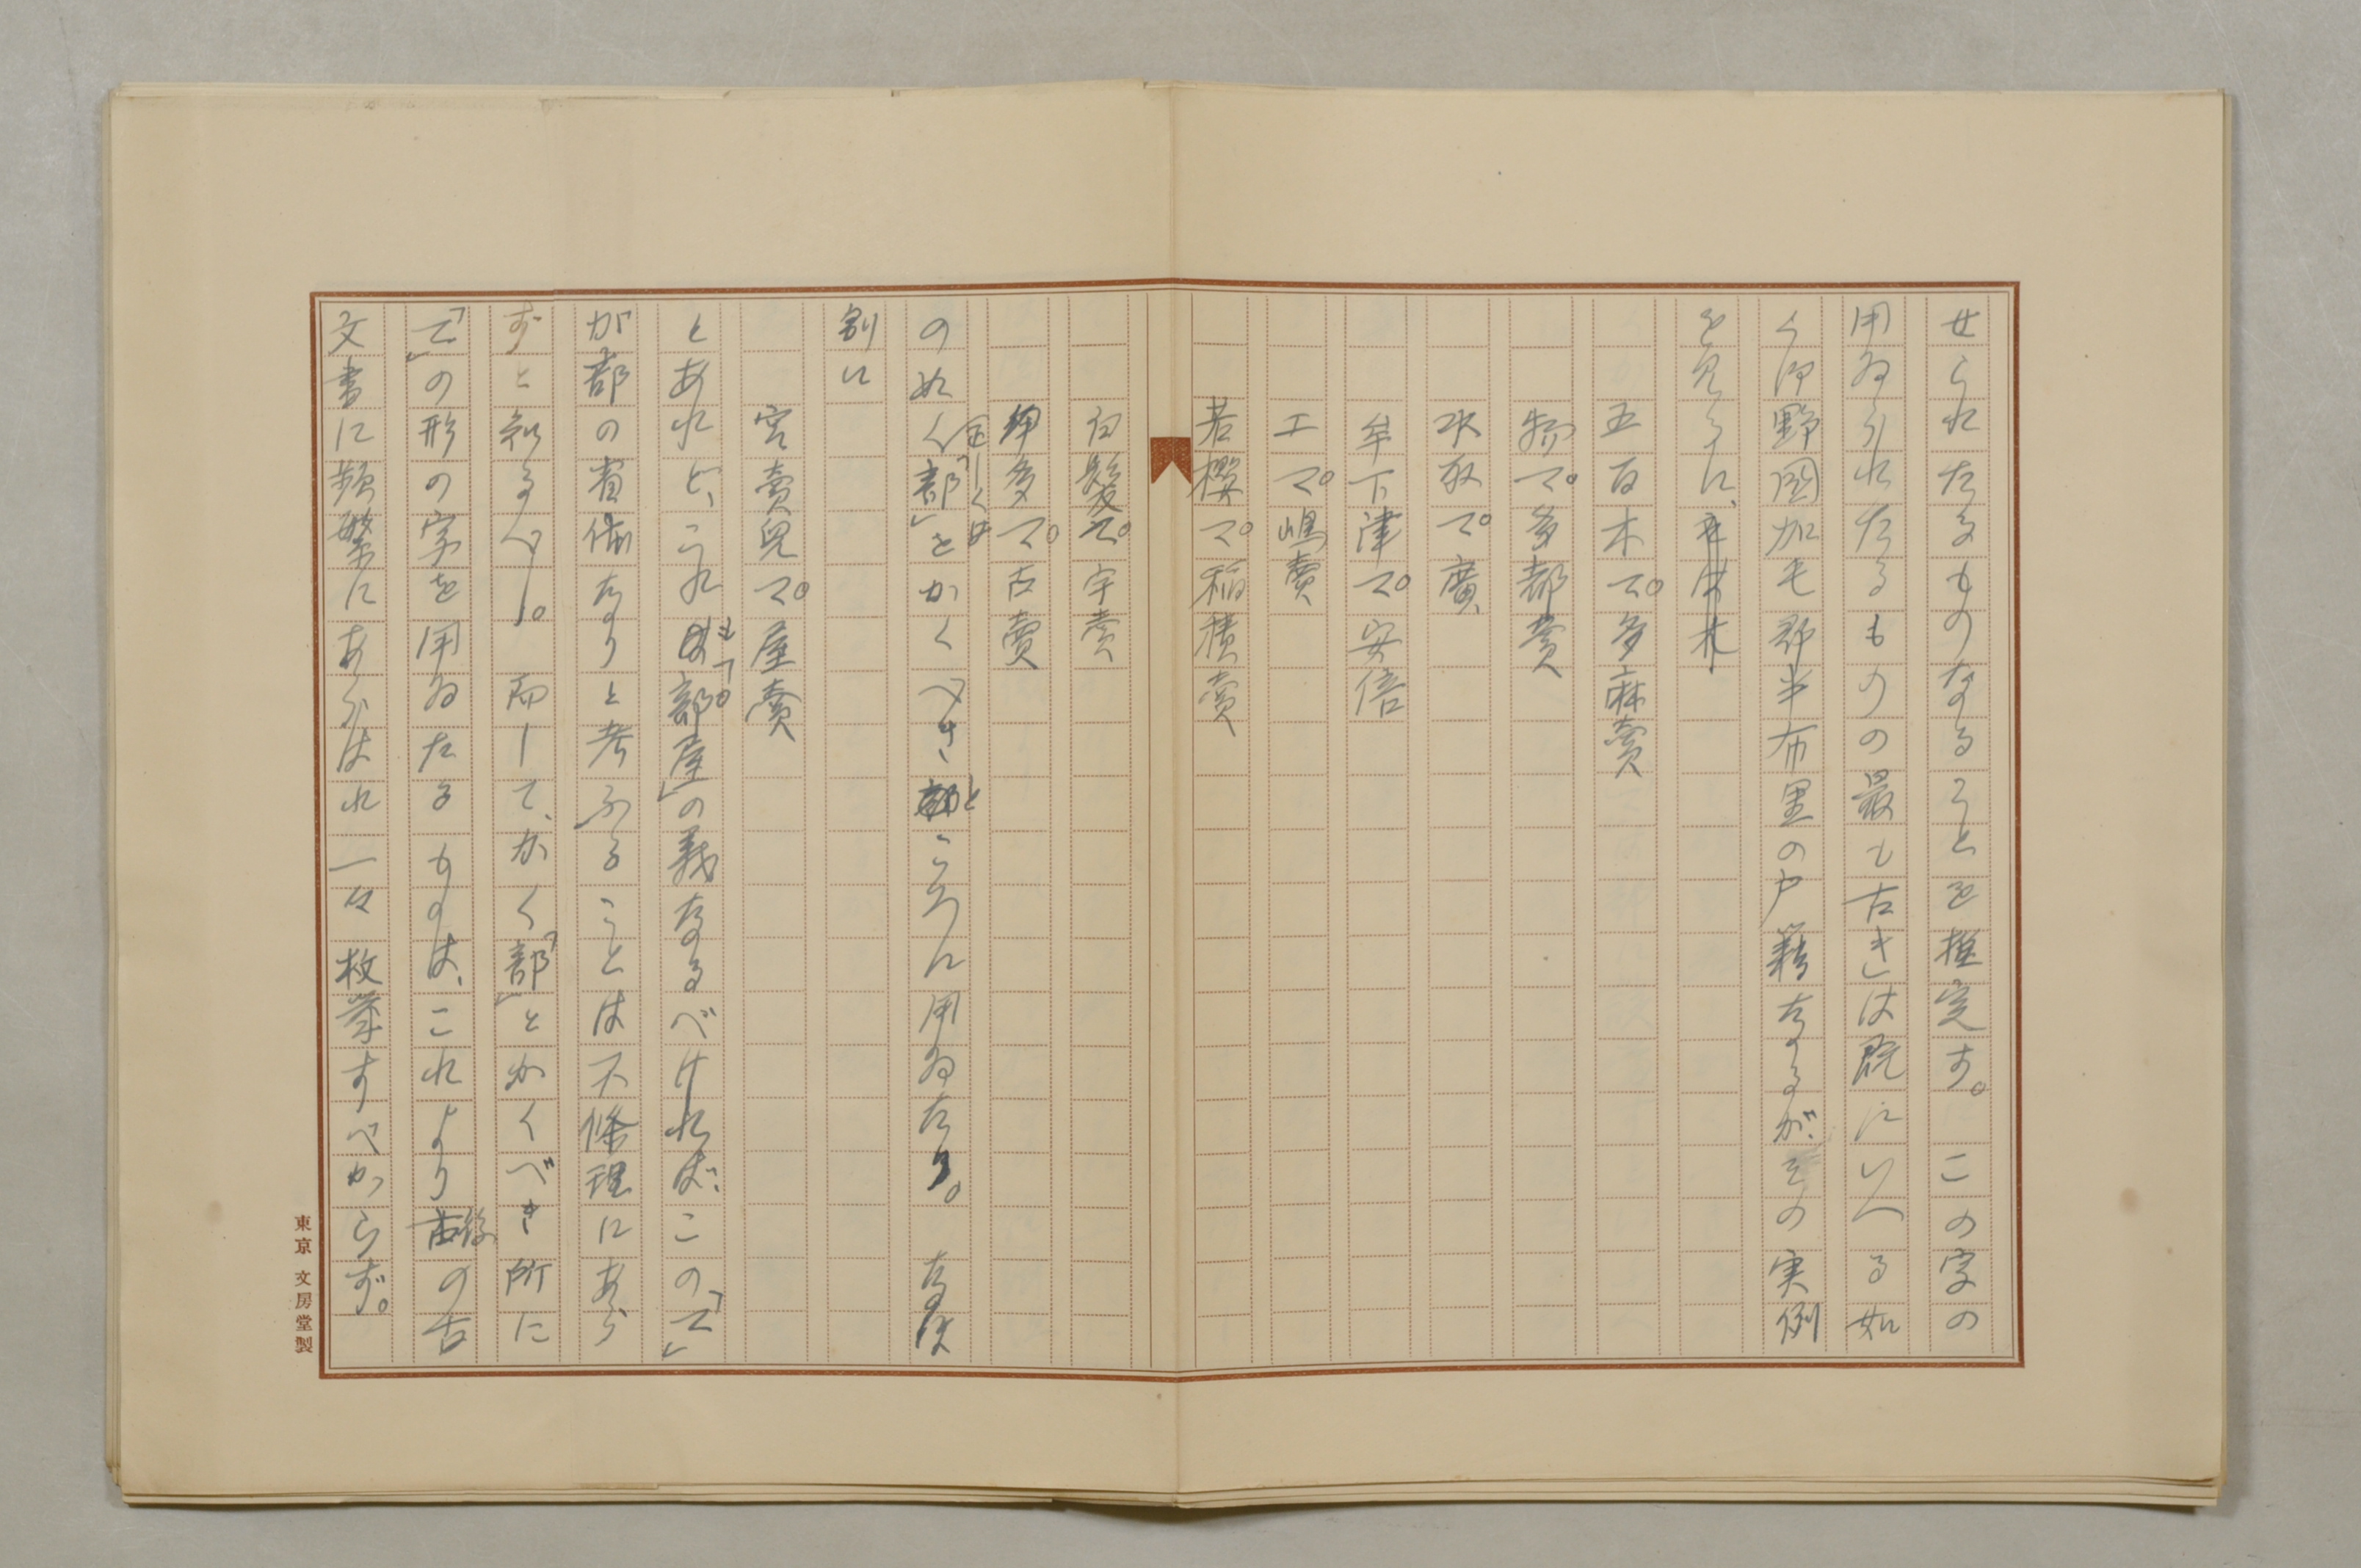 せられたるものなることを推定す。この字の
用ゐられたるものの最も古きは既にいへる如
く御野國加毛郡半布里の戸籍なるが、その実例
を見るに、
五百木マ。多麻賣
物マ。多都賣
水取マ。廣
牟下津マ。安倍
工マ。嶋賣
若櫻マ。稲積賣
白髪マ。宇賣
マ。古賣
の如く「部」をかくべきところに用ゐたり。なほ
別に
宮賣兒マ。屋賣
とあれど、これも「部屋」の義なるべければ、この「マ」
が部の省体なりと考ふることは不條理にあら
ずと知るべし。而して、かく「部」とかくべき所に
「マ」の形の字を用ゐたるものは、これより後の古
文書に頻繁にあらはれ一々枚挙すべからず。
東京 文房堂製